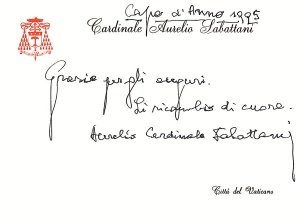 Capo d'Anno 1995
Cardinale Aurelio Sabattani
Grazie per gli auguri.
Li ricambio di cuore.
Aurelio Cardinale Sabattani
Città del Vaticano